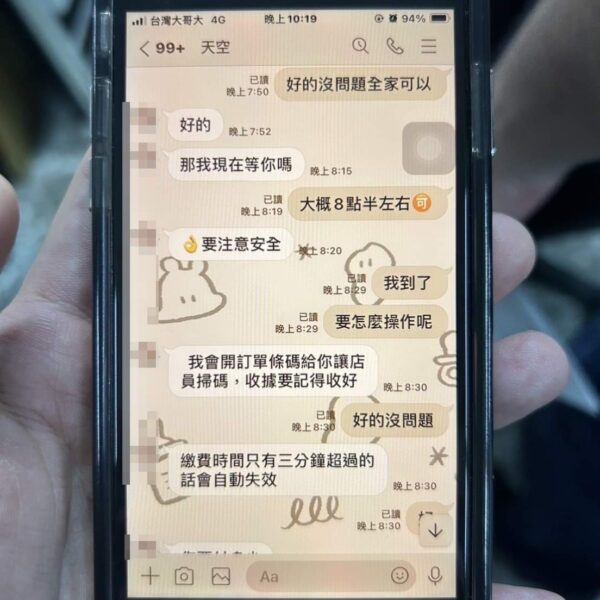 台灣大哥大 4G 晚上10:19 94%
99+ 天空
好的沒問題全家可以
已讀
晚上7:50
好的
晚上7:52
那我現在等你嗎
晚上8:15
大概8點半左右🉑
已讀
晚上8:19
👌要注意安全
晚上8:20
我到了
已讀
晚上8:29
要怎麼操作呢
已讀
晚上8:29
我會開訂單條碼給你讓店
員掃碼，收據要記得收好
晚上8:30
好的沒問題
已讀
晚上8:30
繳費時間只有三分鐘超過的
話會自動失效
晚上8:30
已讀
晚上8:30
Aa